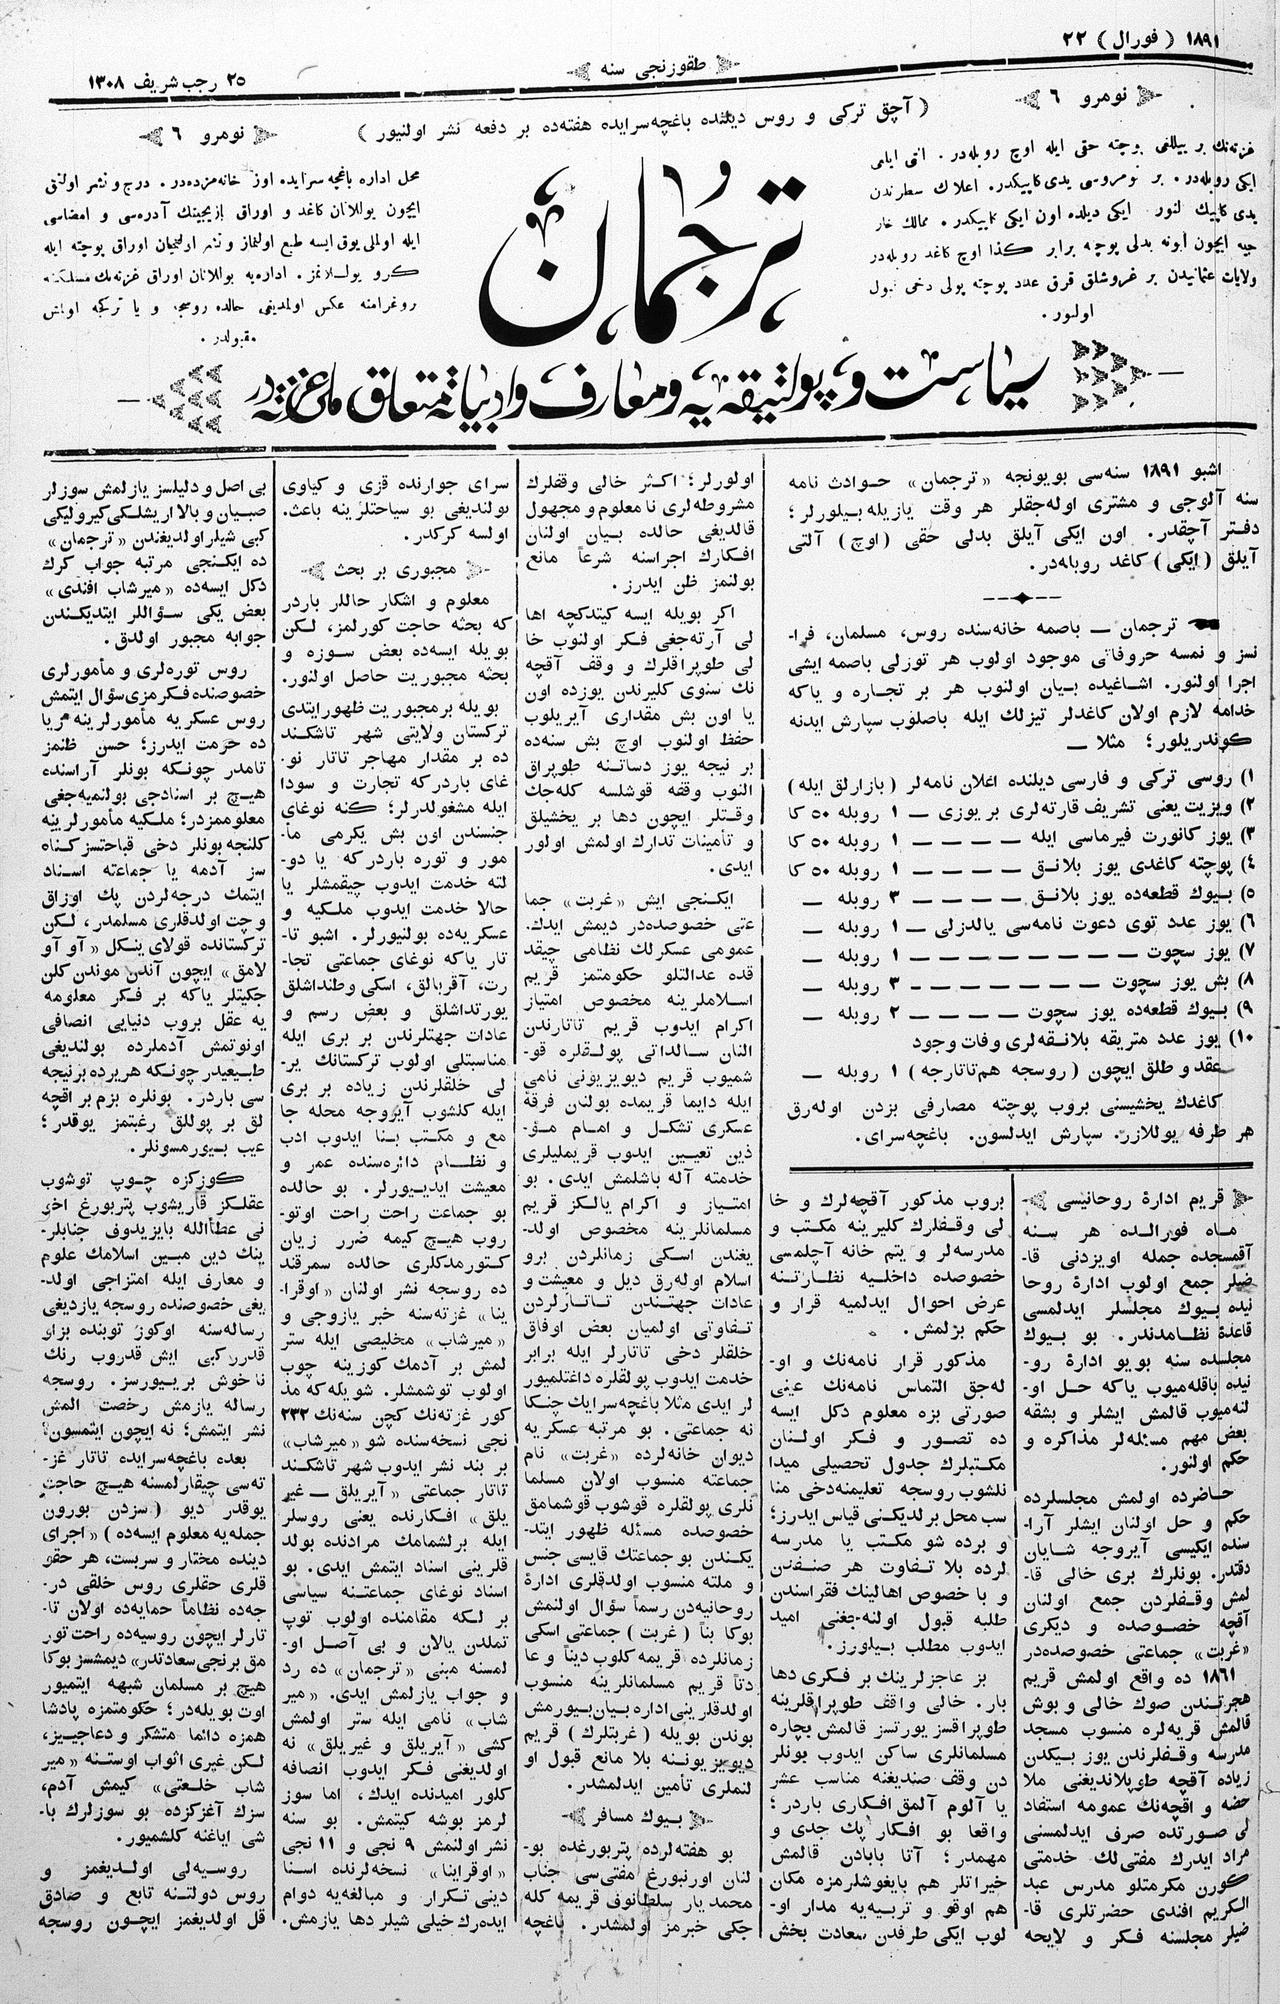 ١٨٩١ ( فورال ) ٢٢
طقوزنجی سنه
٢٥ رجب شریف ١٣٠٨
نومرو ٦
( آچق ترکی و روس دیلنده باغچه‌سرایده هفته‌ده بر دفعه نشر اولنیور )
نومرو ٦
غزته‌نك بر ییللغی پوچته حقی ایله اوچ روبله‌در. آلتی آیلغی
ایکی روبله‌در. بر نومروسی یدی کاپیکدر. اعلانك سطرندن
یدی کاپیك آلنور. ایکی دیلده اون ایکی کاپیکدر. ممالك خار
جیه ایچون آبونه بدلی پوچه برابر کذا اوچ کاغد روبله‌در
ولایات عثمانیدن بر غروشلق قرق عدد پوچته پولی دخی قبول
اولنور.
محل اداره باغچه سرایده اوز خانه‌مزده‌در. درج و نشر اولنق
ایچون یوللانان کاغد و اوراق یازیجینك آدره‌سی و امضاسی
ایله اولملی یوق ایسه طبع اولنماز و نشر اولنمیان اوراق پوچته ایله
کرو یوللانمز. اداره‌یه یوللانان اوراق غزته‌نك مسلکنه
روغرامنه عکس اولمدیغی حالده روسجه و یا ترکجه اولمش
مقبولدر.
ترجمان
سیاست و پولتیقه‌یه و معارف و ادبیاته متعلق ملی غزته‌در
اشبو ١٨٩١ سنه‌سی بویونجه «ترجمان» حوادث نامه
سنه آلوجی و مشتری اوله‌جقلر هر وقت یازیله بیلورلر؛
دفتر آچقدر. اون ایکی آیلق بدلی حقی (اوچ) آلتی
آیلق (ایکی) کاغد روبله‌در.
ترجمان — باصمه خانه‌سنده روس، مسلمان، فرا-
نسز و نمسه حروفاتی موجود اولوب هر توزلی باصمه ایشی
اجرا اولنور. اشاغیده بیان اولنوب هر بر تجاره و یاکه
خدامه لازم اولان کاغدلر تیزلك ایله باصلوب سپارش ایدنه
کوندریلور؛ مثلا —
١) روسی ترکی و فارسی دیلنده اعلان نامه‌لر (بازارلق ایله)
٢) ویزیت یعنی تشریف قارته‌لری بر یوزی — ١ روبله ٥٠ کا
٣) یوز کانورت فیرماسی ایله — — — — ١ روبله ٥٠ کا
٤) پوچته کاغدی یوز بلانق — — — — ١ روبله ٥٠ کا
٥) بیوك قطعه‌ده یوز بلانق — — — — ٣ روبله —
٦) یوز عدد توی دعوت نامه‌سی یالدزلی — ١ روبله —
٧) یوز سچوت — — — — — — — — ١ روبله —
٨) بش یوز سچوت — — — — — — — ٣ روبله —
٩) بیوك قطعه‌ده یوز سچوت — — — — ٢ روبله —
١٠) یوز عدد متریقه بلانقه‌لری وفات وجود
عقد و طلق ایچون (روسجه هم تاتارجه) ١ روبله —
کاغدك یخشیسنی بروب پوچته مصارفی بزدن اوله‌رق
هر طرفه یوللازر. سپارش ایدلسون. باغچه‌سرای.
قریم ادارهٔ روحانیسی
ماه فورالده هر سنه
آقمسجده جمله اویزدنی قا-
ضیلر جمع اولوب ادارهٔ روحا
نیده بیوك مجلسلر ایدلمسی
قاعدهٔ نظامدندر. بو بیوك
مجلسده سنه بویو ادارهٔ رو-
نیده باقله‌میوب یاکه حل او-
لنه‌میوب قالمش ایشلر و بشقه
بعض مهم مسئله‌لر مذاکره و
حکم اولنور.
حاضرده اولمش مجلسلرده
حکم و حل اولنان ایشلر آرا-
سنده ایکیسی آیروجه شایان
دقتدر. بونلرك بری خالی قا-
لمش وقفلردن جمع اولنان
آقچه خصوصده و دیکری
«غربت» جماعتی خصوصده‌در
١٨٦١ ده واقع اولمش قریم
هجرتندن صوك خالی و بوش
قالمش قریه‌لره منسوب مسجد
مدرسه وقفلرندن یوز بیکدن
زیاده آقچه طوپلاندیغنی ملا
حضه و اقچه‌نك عمومه استفاد
لی صورتده صرف ایدلمسنی
مراد ایدرك مفتی‌لك خدمتی
کورن مکرمتلو مدرس عبد
الکریم افندی حضرتلری قا-
ضیلر مجلسنه فکر و لایحه
بروب مذکور آقچه‌لرك و خا
لی وقفلرك کلیرینه مکتب و
مدرسه‌لر و یتم خانه آچلمسی
خصوصده داخلیه نظارتنه
عرض احوال ایدلمیه قرار و
حکم بزلمش.
مذکور قرار نامه‌نك و او-
له‌جق التماس نامه‌نك عینی
صورتی بزه معلوم دکل ایسه
ده تصور و فکر اولنان
مکتبلرك جدول تحصیلی میدا
نلشوب روسجه تعلیمنه‌دخی منا
سب محل برلدیکنی قیاس ایدرز؛
و برده شو مکتب یا مدرسه
لرده بلا تفاوت هر صنفدن
و با خصوص اهالینك فقراسندن
طلبه قبول اولنه‌جغنی امید
ایدوب مطلب بیلورز.
بز عاجزلرینك بر فکری دها
بار. خالی واقف طوپراقلرینه
طوپراقسز یورتسز قالمش بچاره
مسلمانلری ساکن ایدوب بونلر
دن وقف صندیغنه مناسب عشر
یا آلوم آلمق افکاری باردر؛
واقعا بو افکار پك جدی و
مهمدر؛ آتا بابادن قالمش
خیراتلر هم بایغوشلرمزه مکان
هم اوقو و تربیه‌یه مدار او-
لوب ایکی طرفدن سعادت بخش
اولورلر؛ اکثر خالی وقفلرك
مشروطه‌لری نا معلوم و مجهول
قالدیغی حالده بیان اولنان
افکارك اجراسنه شرعاً مانع
بولنمز ظن ایدرز.
اکر بویله ایسه کیتدکچه اها
لی آرته‌جغی فکر اولنوب خا
لی طوپراقلرك و وقف آقچه
نك سنوی کلیرندن یوزده اون
یا اون بش مقداری آیریلوب
حفظ اولنوب اوچ بش سنه‌ده
بر نیجه یوز دساتنه طوپراق
آلنوب وقفه قوشلسه کله‌جك
وقتلر ایچون دها بر یخشیلق
و تأمینات تدارك اولمش اولور
ایدی.
ایکنجی ایش «غربت» جما
عتی خصوصده‌در دیمش ایدك.
عمومی عسکرلك نظامی چیقد
قده عدالتلو حکومتمز قریم
اسلاملرینه مخصوص امتیاز
اکرام ایدوب قریم تاتارندن
آلنان سالداتی پولقلره قو-
شمیوب قریم دیویزیونی نامی
ایله دایما قریمده بولنان فرقهٔ
عسکری تشکل و امام مؤ-
ذین تعیین ایدوب قریملیلری
خدمته آله باشلمش ایدی. بو
امتیاز و اکرام یالکز قریم
مسلمانلرینه مخصوص اولد-
یغندن اسکی زمانلردن برو
اسلام اوله‌رق دیل و معیشت و
عادات جهتندن تاتارلردن
تفاوتی اولمیان بعض اوفاق
خلقلر دخی تاتارلر ایله برابر
خدمت ایدوب پولقلره داغتلمیور
لر ایدی مثلا باغچه‌سرایك چنکا
نه جماعتی. بو مرتبه عسکریه
دیوان خانه‌لرده «غربت» نام
جماعته منسوب اولان مسلما
نلری پولقلره قوشوب قوشمامق
خصوصده مسئله ظهور ایتد-
یکندن بو جماعتك قایسی جنس
و ملته منسوب اولدقلری ادارهٔ
روحانیه‌دن رسماً سؤال اولنمش
بوکا بناً (غربت) جماعتی اسکی
زمانلرده قریمه کلوب دیناً و عا
دتاً قریم مسلمانلرینه منسوب
اولدقلرینی اداره بیان‌بیورمش
بوندن بویله (غربتلرك) قریم
دیویزیونه بلا مانع قبول او
لنملری تأمین ایدلمشدر.
بیوك مسافر
بو هفته‌لرده پتربورغده بو-
لنان اورنبورغ مفتی‌سی جناب
محمدیار سلطانوف قریمه کله
جکی خبرمز اولمشدر. باغچه
سرای جوارنده قزی و کیاوی
بولندیغی بو سیاحتلرینه باعث.
اولسه کرکدر.
مجبوری بر بحث
معلوم و اشکار حاللر باردر
که بحثه حاجت کورلمز، لکن
بویله ایسه‌ده بعض سوزه و
بحثه مجبوریت حاصل اولنور.
بویله بر مجبوریت ظهور ایتدی
ترکستان ولایتی شهر تاشکند
ده بر مقدار مهاجر تاتار نو-
غای باردرکه تجارت و سودا
ایله مشغولدرلر؛ کنه نوغای
جنسندن اون بش یکرمی مأ-
مور و توره باردرکه یا دو-
لته خدمت ایدوب چیقمشلر یا
حالا خدمت ایدوب ملکیه و
عسکریه‌ده بولنیورلر. اشبو تا-
تار یاکه نوغای جماعتی تجا-
رت، آقربالق، اسکی وطنداشلق
یورتداشلق و بعض رسم و
عادات جهتلرندن بر بری ایله
مناسبتلی اولوب ترکستانك یر-
لی خلقلرندن زیاده بر بری
ایله کلشوب آیروجه محله جا
مع و مکتب بنا ایدوب ادب
و نظام دائره‌سنده عمر و
معیشت ایدییورلر. بو حالده
بو جماعت راحت راحت اوتو-
روب هیچ کیمه ضرر زیان
کتورمدکلری حالده سمرقند
ده روسجه نشر اولنان «اوقرا-
ینا» غزته‌سنه خبر یازوجی و
«میرشاب» مخلیصی ایله ستر
لمش بر آدمك کوزینه چوب
اولوب توشمشلر. شویله‌که مذ
کور غزته‌نك کچن سنه‌نك ٢٣٢
نجی نسخه‌سنده شو «میرشاب»
بر بند نشر ایدوب شهر تاشکند
تاتار جماعتی «آیریلق — غیر
یلق» افکارنده یعنی روسلر
ایله برلشمامك مرادنده بولد
قلرینی اسناد ایتمش ایدی. بو
اسناد نوغای جماعتنه سیاسی
بر لکه مقامنده اولوب توپ
تملدن یالان و بی آصل او-
لمسنه مبنی «ترجمان» ده رد
و جواب یازلمش ایدی. «میر
شاب» نامی ایله ستر اولمش
کشی «آیریلق و غیریلق» نه
اولدیغنی فکر ایدوب انصافه
کلور امیدنده ایدك، اما سوز
لرمز بوشه کیتمش. بو سنه
نشر اولنمش ٩ نجی و ١١ نجی
«اوقراینا» نسخه‌لرنده اسنا
دینی تکرار و مبالغه‌یه دوام
ایده‌رك خیلی شیلر دها یازمش.
بی اصل و دلیلسز یازلمش سوزلر
صبیان و بالالار ایشلکی کیرولیکی
کبی شیلر اولدیغندن «ترجمان»
ده ایکنجی مرتبه جواب کرك
دکل ایسه‌ده «میرشاب افندی»
بعض یکی سؤاللر ایتدیکندن
جوابه مجبور اولدق.
روس توره‌لری و مأمورلری
خصوصنده فکرمزی سؤال ایتمش
روس عسکریه مأمورلرینه هر یا
ده حرمت ایدرز؛ حسن ظنمز
تامدر چونکه بونلر آراسنده
هیچ بر اسنادجی بولنمیه‌جغی
معلوممزدر؛ ملکیه مأمورلرینه
کلنجه بونلر دخی قباحتسز کناه
سز آدمه یا جماعته اسناد
ایتمك درجه‌لردن پك اوزاق
و چت اولدقلری مسلمدر، لکن
ترکستانده قولای ینکل «آو آو
لامق» ایچون آندن موندن کلن
جکیتلر یاکه بر فکر معلومه
یه عقل بروب دنیایی انصافی
اونوتمش آدملرده بولندیغی
طبیعیدر چونکه هر یرده بر نیجه
سی باردر. بونلره بزم بر اقچه
لق بر پوللق رغبتمز یوقدر؛
عیب بیورمسونلر.
کوزکزه چوپ توشوب
عقلکز قاریشوب پتربورغ اخو
نی عطأالله بایزیدوف جنابلر-
ینك دین مبین اسلامك علوم
و معارف ایله امتزاجی اولد-
یغی خصوصنده روسجه یازدیغی
رساله‌سنه اوکوز توبنده بزاو
قدرر کبی ایش قدروب رنك
نا خوش بریورسز. روسجه
رساله یازمش رخصت آلمش
نشر ایتمش؛ نه ایچون ایتمسون؟
بعده باغچه‌سرایده تاتار غز-
ته‌سی چیقارلمسنه هیچ حاجت
یوقدر دیو (سزدن بورون
جمله‌یه معلوم ایسه‌ده) «اجرای
دینده مختار و سربست، هر حقو
قلری حقلری روس خلقی در-
جه‌ده نظاماً حمایه‌ده اولان تا-
تارلر ایچون روسیه‌ده راحت تور
مق برنجی سعادتدر» دیمشسز بوکا
هیچ بر مسلمان شبهه ایتمیور
اوت بویله‌در؛ حکومتمزه پادشا
همزه دائما متشکر و دعاجییز،
لکن غیری اثواب اوستنه «میر
شاب خلعتی» کیمش آدم،
سزك آغزکزده بو سوزلرك با-
شی ایاغنه کلشمیور.
روسیه‌لی اولدیغمز و
روس دولتنه تابع و صادق
قل اولدیغمز ایچون روسجه